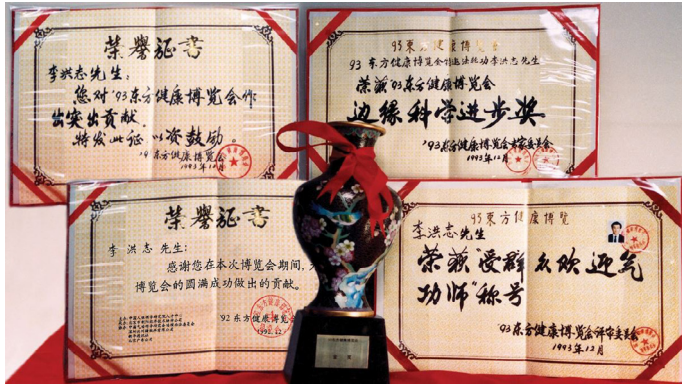 荣誉证书
李洪志先生：
您对'93东方健康博览会作
出突出贡献
特发此证 以资鼓励。
'93东方健康博览会
1993年12月
93东方健康博览会
93 东方健康博览会 法轮功李洪志先生
荣获'93东方健康博览会
边缘科学进步奖
'93东方健康博览会专家委员会
1993年12月
荣誉证书
李 洪志 先生：
感谢您在本次博览会期间，
博览会的圆满成功做出的贡献。
'92东方健康博览会
1992.12
93东方健康博览
李洪志先生
荣获"受群众欢迎气
功师"称号
'93东方健康博览会评审委员会
1993年12月